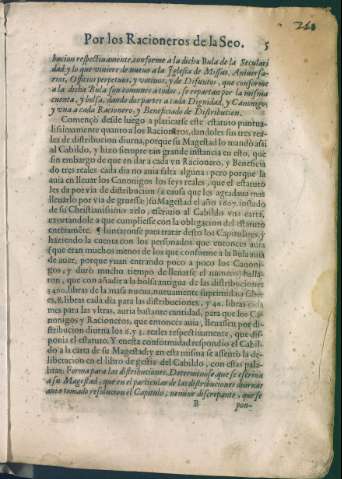 260
Por los Racioneros de la Seo. 5
bucion respectivamente, conforme a la dicha Bula de la Seculari
dad y lo que viniere de nuevo a la Iglesia de Missas, Aniversa-
rios, Officios perpetuos, y votivos, y de Defuntos, que conforme
a la dicha Bula son comunes a todos, se repartan por la misma
cuenta, y bolsa, dando dos partes a cada Dignidad, y Canonigo
y una a cada Racionero, y Beneficiado de Distribucion.
Començò desde luego a platicarse este estatuto puntua-
lissimamente quanto a los Racioneros, dandoles sus tres rea-
les de distribucion diurna, porque su Magestad lo mandò assi
al Cabildo, y hizo siempre tan grande instancia en esto, que
sin embargo de que en dar a cada un Racionero, y Beneficia
do tres reales cada dia no avia falta alguna; pero porque la
avia en llevar los Canonigos los seys reales, que el estatuto
les da por via de distribucion (a causa que les agradava mas
llevarlo por via de gruessa) su Magestad el año 1607. instado
de su Christianissimo zelo, escrivio al Cabildo una carta,
exortandole a que cumpliesse con la obligacion del estatuto
enteramẽte. ¶ Iuntaronse para tratar desto los Capitulares, y
haziendo la cuenta con los personados que entonces avia
(que eran muchos menos de los que conforme a la Bula avia
de aver, porque yuan entrando poco a poco los Canoni-
gos, y durò mucho tiempo de llenarse el numero) halla-
ron, que con añadir a la bolsa antigua de las distribuciones
5400. libras de la masa nueva
es, 8. libras cada dia para las distribuciones, y 40. libras cada
mes para las
nigos y Racioneros, que entonces avia, llevassen por di-
stribucion diurna los 6. y 3. reales respectivamente, que dis-
ponia el estatuto. Y en esta conformidad respondio el Cabil-
do a la carta de su Magestad; y en esta misma se assentò la de-
liberacion en el libro de gestis del Cabildo, con estas pala-
bras: Forma para las distribuciones. Determinose que se escriva
a su Magestad, que en el particular de las distribuciones diurnas
avia tomado resolucion el Capitulo, nemine discrepante, que se
B pon-